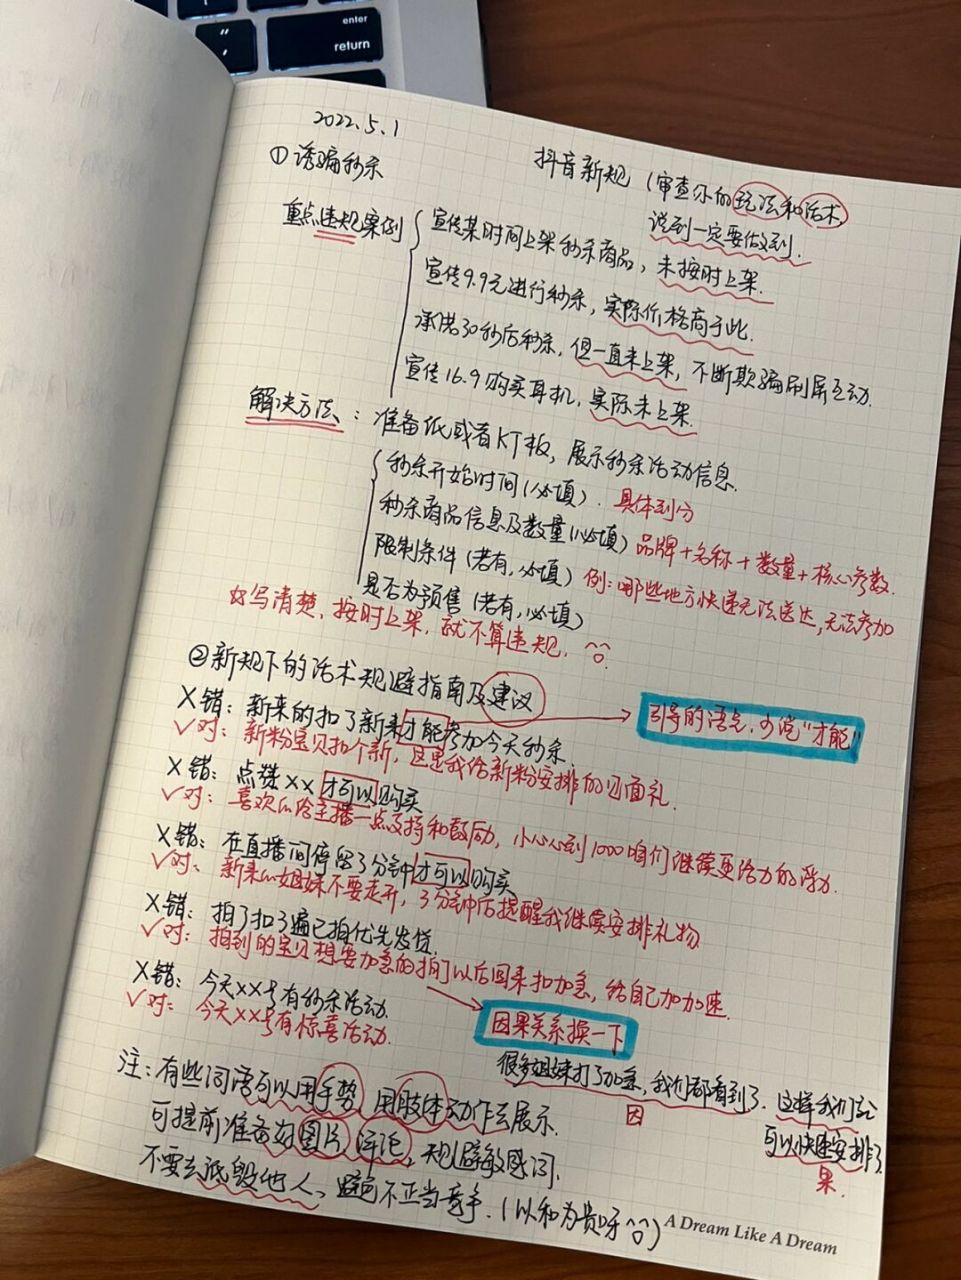 enter
return
2022.5.1
抖音新规（审查你的玩法和话术,
说到一定要做到.
①诱骗秒杀
重点违规案例
宣传某时间上架秒杀商品，未按时上架.
宣传9.9元进行秒杀，实际价格高于此.
承诺30秒后秒杀，但一直未上架，不断欺骗刷屏互动.
宣传16.9购买耳机，实际未上架.
解决方法：准备纸或者KT板，展示秒杀活动信息.
秒杀开始时间（必填）. 具体到分
秒杀商品信息及数量（必填）品牌+名称+数量+核心参数.
限制条件（若有，必填）例：哪些地方快递无法送达,无法参加
是否为预售（若有，必填）
好写清楚，按时上架，就不算违规.
②新规下的话术规避指南及建议
X错：新来的扣了新来才能参加今天秒杀.
引导的语气，少说“才能”
✓对：新粉宝贝扣个新，这是我给新粉安排的见面礼.
X错：点赞XX才可以购买
✓对：喜欢的给主播一点支持和鼓励，小心心到1000咱们继续更给力的福利.
X错：在直播间停留3分钟才可以购买
✓对：新来的姐妹不要走开，3分钟后提醒我继续安排礼物
X错：拍了扣3遍已拍优先发货.
✓对：拍到的宝贝想要加急的拍了以后回来扣加急，给自己加加速.
X错：今天XX号有秒杀活动.
✓对：今天XX号有惊喜活动.
因果关系换一下
很多姐妹打了加急，我们都看到了.这样我们就
因
可以快速安排了
果.
注：有些词语可以用手势，用肢体动作去展示.
可提前准备好图片，评论，规避敏感词.
不要去诋毁他人，避免不正当竞争.（以和为贵呀）
A Dream Like A Dream